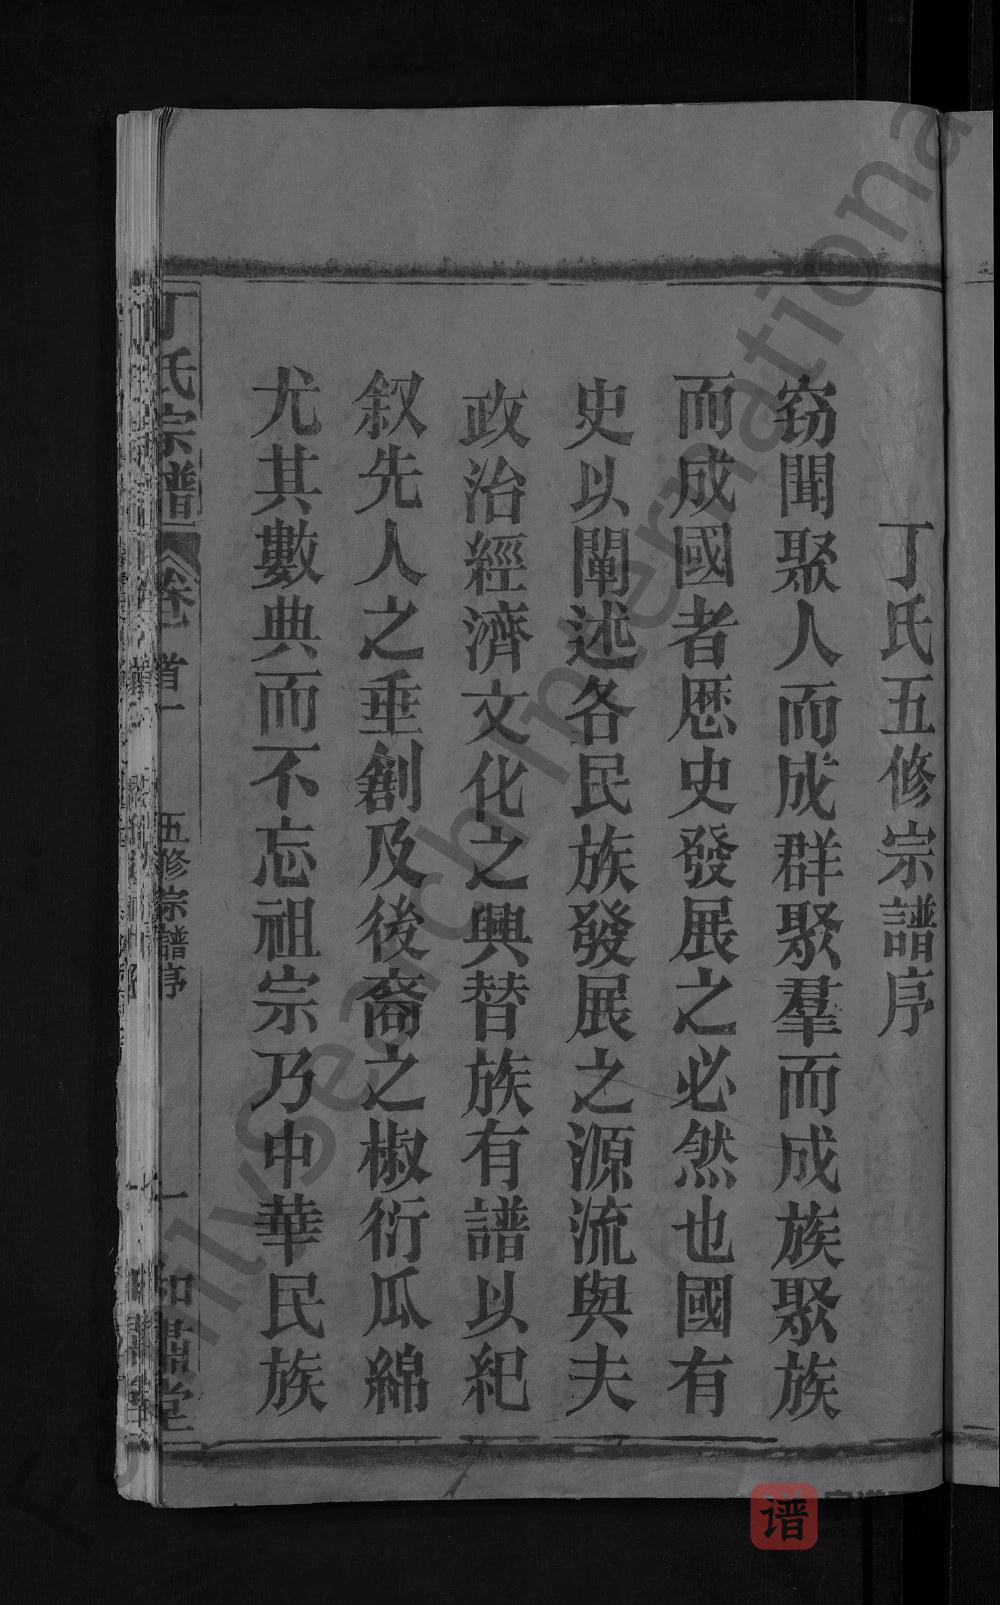 丁氏五修宗譜序
窃聞聚人而成群聚羣而成族聚族
而成國者厯史發展之必然也國有
史以闡述各民族發展之源流與夫
政治經濟文化之興替族有譜以紀
叙先人之垂創及後裔之椒衍瓜綿
尤其數典而不忘祖宗乃中華民族
丁氏宗譜 卷首一 五修宗譜序 一
FamilySearch International
谱